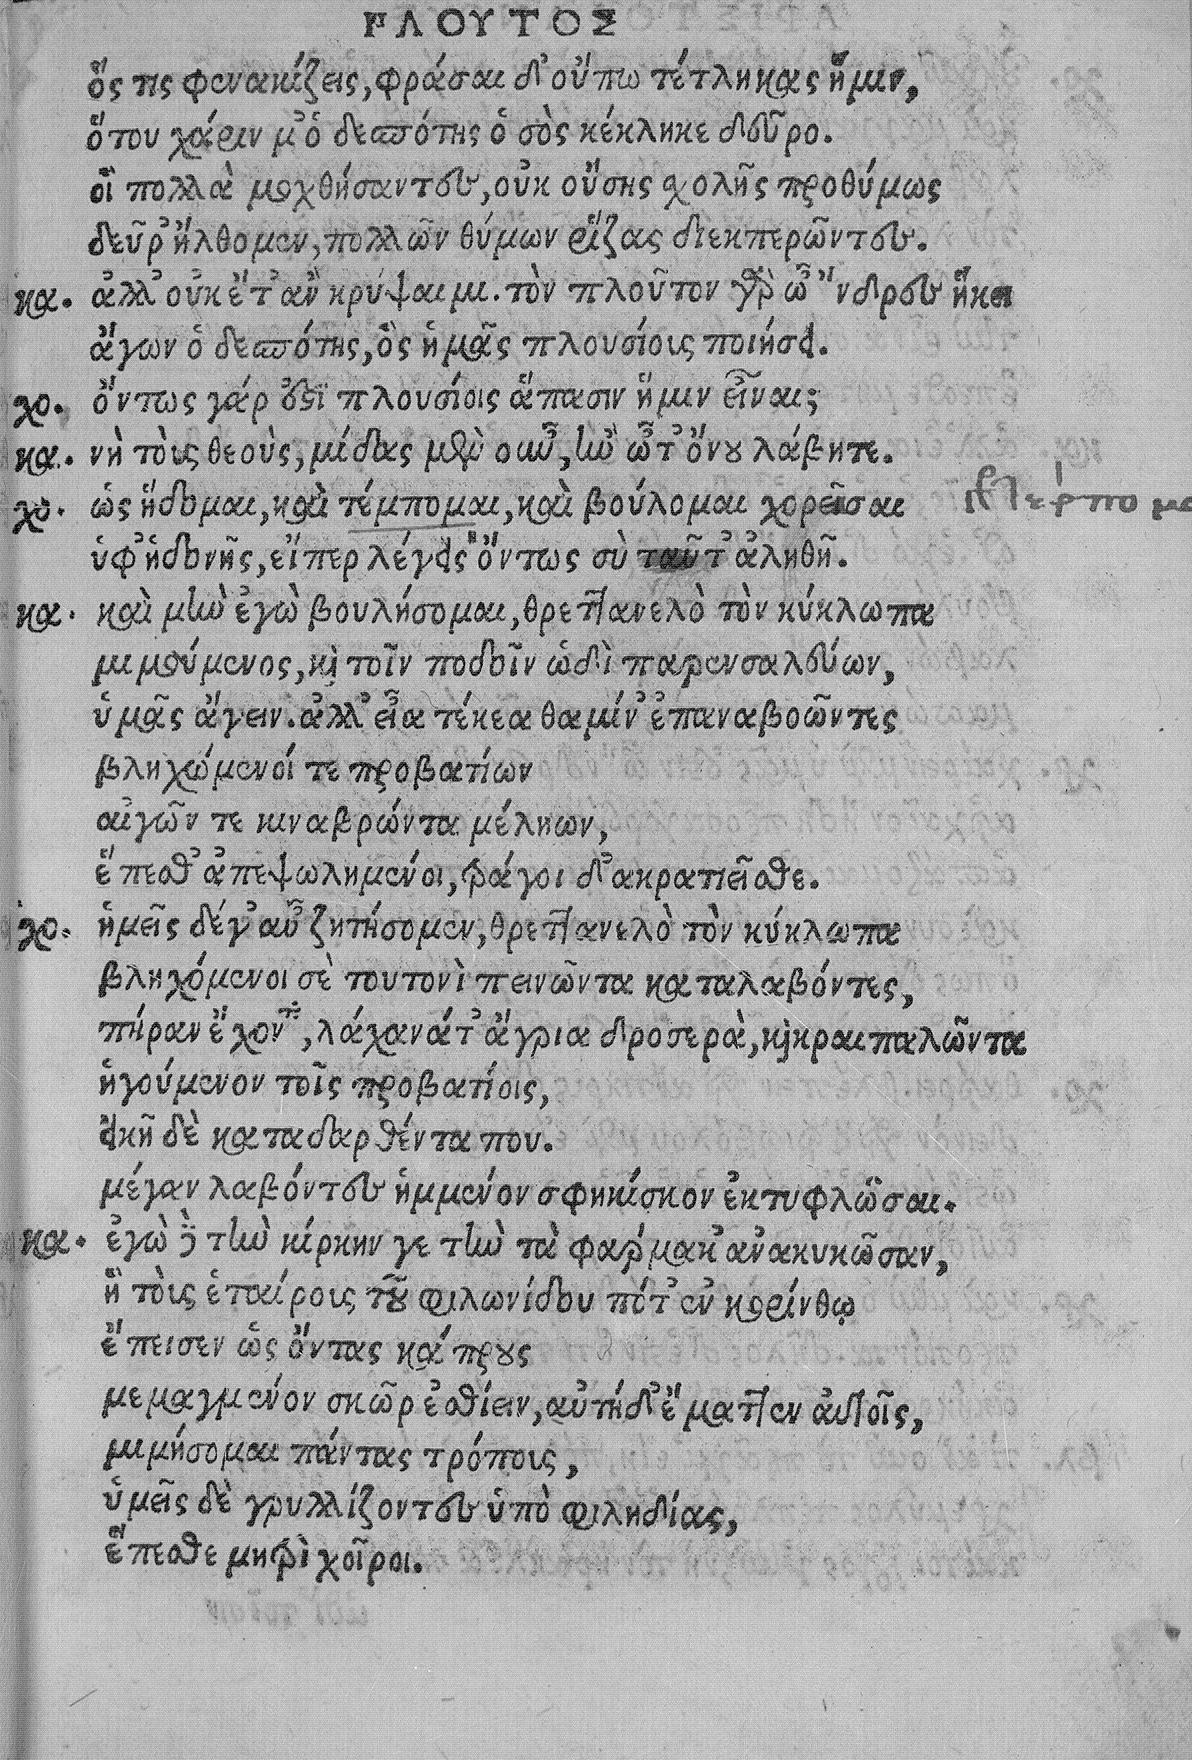 ΠΛΟΥΤΟΣ
ὅς τις φενακίζεις, φράσαι δ' οὔπω τέτληκας ἥμιν,
ὅτου χάριν μ' ὁ δεσπότης ὁ σὸς κέκληκε δεῦρο.
οἳ πολλὰ μοχθήσαντες, οὐκ οὔσης σχολῆς προθύμως
δεῦρ' ἤλθομεν, πολλῶν θύμων ῥίζας διεκπερῶντες.
κα. ἀλλ' οὐκ ἔτ' ἂν κρύψαιμι. τὸν πλοῦτον γὰρ ὦ 'νδρες ἥκει
ἄγων ὁ δεσπότης, ὃς ἡμᾶς πλουσίους ποιήσει.
χο. ὄντως γάρ ἐστι πλουσίοις ἅπασιν ἥμιν εἶναι;
κα. νὴ τοὺς θεοὺς, μίδας μὲν οὖν, ἢν ὦτ' ὄνου λάβητε.
χο. ὡς ἥδομαι, καὶ τέμπομαι, καὶ βούλομαι χορεῖσαι
τέρπομαι
ὑφ' ἡδονῆς, εἴπερ λέγεις ὄντως σὺ ταῦτ' ἀληθῆ.
κα. καὶ μὴν ἐγὼ βουλήσομαι, θρεττανελὸ τὸν κύκλωπα
μιμούμενος, καὶ τοῖν ποδοῖν ὡδὶ παρενσαλεύων,
ὑμᾶς ἄγειν. ἀλλ' εἶα τέκεα θαμίν' ἐπαναβοῶντες
βληχώμενοί τε προβατίων
αἰγῶν τε κιναβρώντα μέλη ων,
ἕπεσθ' ἀπεψωλημένοι, τράγοι δ' ἀκρατιεῖσθε.
χο. ἡμεῖς δέ γ' αὖ ζητήσομεν, θρεττανελὸ τὸν κύκλωπα
βληχόμενοι σὲ τουτονὶ πεινῶντα καταλαβόντες,
πήραν ἔχοντα, λάχανά τ' ἄγρια δροσερὰ, καὶ κραιπαλῶντα
ἡγούμενον τοῖς προβατίοις,
εἰκῆ δὲ καταδαρθέντα που.
μέγαν λαβόντες ἡμμένον σφηκίσκον ἐκτυφλῶσαι.
κα. ἐγὼ δὲ τὴν κίρκην γε τὴν τὰ φάρμακ' ἀνακυκῶσαν,
ἣ τοὺς ἑταίρους τοῦ φιλωνίδου πότ' ἐν κορίνθῳ
ἔπεισεν ὡς ὄντας κάπρους
μεμαγμένον σκῶρ ἐσθίειν, αὐτὴ δ' ἔματτεν αὐτοῖς,
μιμήσομαι πάντας τρόπους,
ὑμεῖς δὲ γρυλλίζοντες ὑπὸ φιληδίας,
ἕπεσθε μητρὶ χοῖροι.